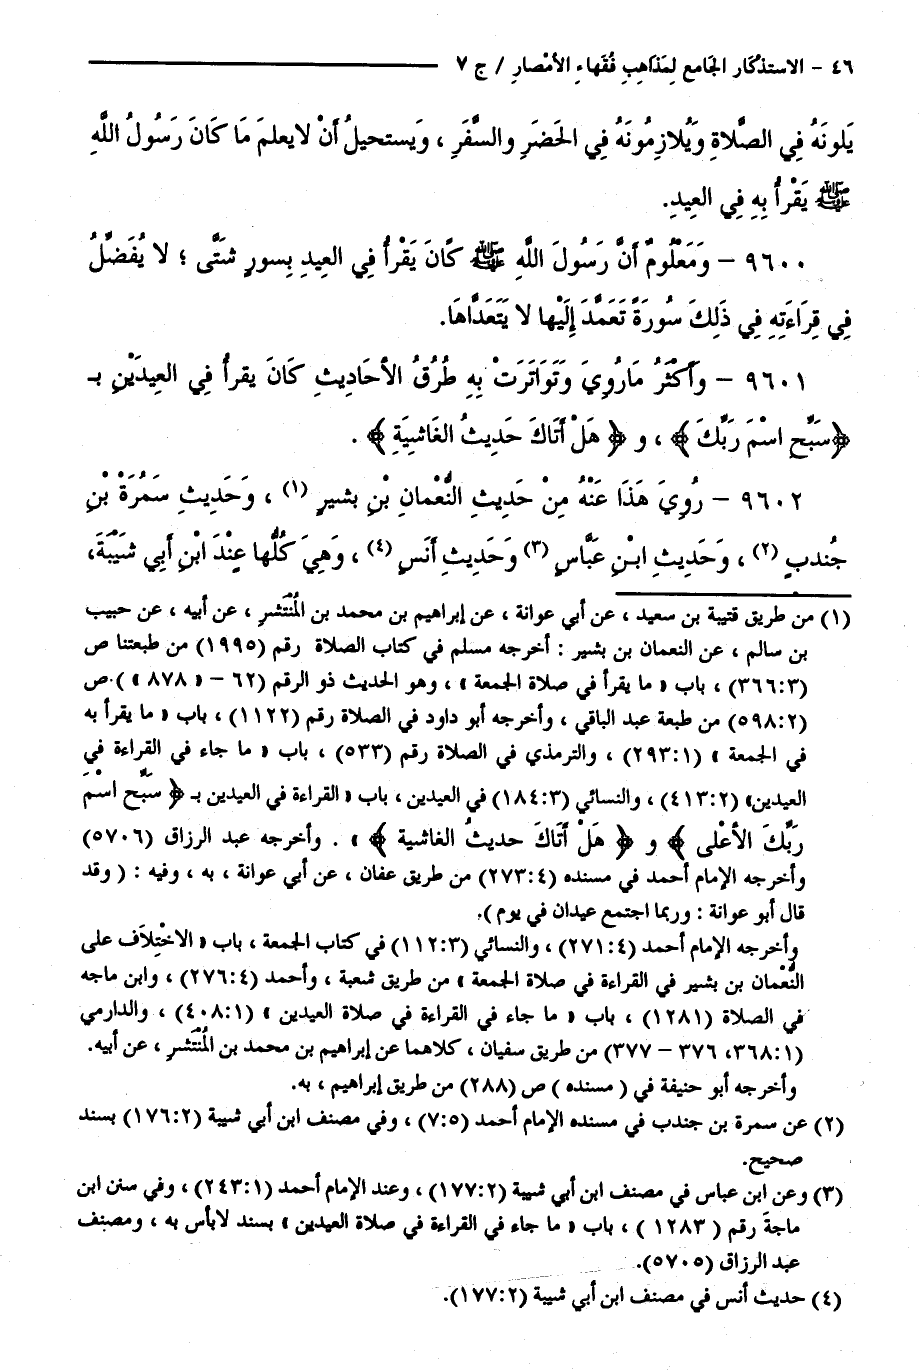 ٤٦ - الاستذْكار الجَامع لِمَذاهِبِ فُقَهاءِ الأمْصارِ / ج ٧
يَلونَهُ فِي الصَّلاةِ وَيُلازِمُونَهُ فِي الحَضَرِ والسَّفَرِ ، وَيستحيلُ أَنْ لايعلمَ مَا كَانَ رَسُولُ اللَّهِ
ﷺ يَقْرأُ بِهِ فِي العِيدِ.
٩٦٠٠ - وَمَعْلُومٌ أَنَّ رَسُولَ اللَّهِ ﷺ كَانَ يَقْرأُ فِي العِيدِ بِسورٍ شَتَّى ؛ لا يُفَضَّلُ
فِي قِرَاءَتِهِ فِي ذَلِكَ سُورَةً تَعَمَّدَ إِلَيْها لا يَتَعَدَّاهَا.
٩٦٠١ - وأَكْثَرُ مَارُوِيَ وَتَوَاتَرَتْ بِهِ طُرُقُ الأحَادِيثِ كَانَ يقرأُ فِي العِيدَيْنِ بـ
﴿سَبِّحِ اسْمَ رَبِّكَ﴾ ، و ﴿ هَلْ أَتَاكَ حَدِيثُ الغَاشِيَةِ ﴾ .
٩٦٠٢ - رُوِيَ هَذَا عَنْهُ مِنْ حَدِيثِ النُّعْمانِ بْنِ بشيرٍ (١) ، وَحَدِيثِ سَمُرَةَ بْنِ
جُندبٍ (٢) ، وَحَدِيثِ ابْنِ عَبَّاسٍ (٣) وَحَدِيثِ أَنَسٍ (٤) ، وَهِيَ كُلُّها عِنْدَ ابْنِ أَبِي شَيْبَةَ،
(١) من طريق قتيبة بن سعيد ، عن أبي عوانة ، عن إبراهيم بن محمد بن المُنْتَشر ، عن أبيه ، عن حبيب
بن سالم ، عن النعمان بن بشير : أخرجه مسلم في كتاب الصلاة رقم (١٩٩٥) من طبعتنا ص
(٣٦٦:٣) ، باب « ما يقرأ في صلاة الجمعة » ، وهو الحديث ذو الرقم (٦٢ - « ٨٧٨ » ).ص
(٥٩٨:٢) من طبعة عبد الباقي ، وأخرجه أبو داود في الصلاة رقم (١١٢٢) ، باب « ما يقرأ به
في الجمعة » (٢٩٣:١) ، والترمذي في الصلاة رقم (٥٣٣) ، باب « ما جاء في القراءة في
العيدين» (٤١٣:٢) ، والنسائي (١٨٤:٣) في العيدين ، باب « القراءة في العيدين بـ ﴿ سَبِّح اسْمَ
رَبِّكَ الأَعْلى ﴾ و ﴿ هَلْ أَتَاكَ حديثُ الغاشية ﴾ » . وأخرجه عبد الرزاق (٥٧٠٦)
وأخرجه الإمام أحمد في مسنده (٢٧٣:٤) من طريق عفان ، عن أبي عوانة ، به ، وفيه : ( وقد
قال أبو عوانة : وربما اجتمع عيدان في يوم ).
وأخرجه الإمام أحمد (٢٧١:٤) ، والنسائي (١١٢:٣) في كتاب الجمعة ، باب « الاخْتِلاَف على
النُّعْمان بن بشير في القراءة في صلاة الجمعة » من طريق شعبة ، وأحمد (٢٧٦:٤) ، وابن ماجه
في الصلاة (١٢٨١) ، باب « ما جاء في القراءة في صلاة العيدين » (٤٠٨:١) ، والدارمي
(٣٦٨:١، ٣٧٦ - ٣٧٧) من طريق سفيان ، كلاهما عن إبراهيم بن محمد بن المُنْتَشر ، عن أبيه.
وأخرجه أبو حنيفة في ( مسنده ) ص (٢٨٨) من طريق إبراهيم ، به.
(٢) عن سمرة بن جندب في مسنده الإمام أحمد (٧:٥) ، وفي مصنف ابن أبي شيبة (١٧٦:٢) بسند
صحيح.
(٣) وعن ابن عباس في مصنف ابن أبي شيبة (١٧٧:٢) ، وعند الإمام أحمد (٢٤٣:١) ، وفي سنن ابن
ماجةَ رقم ( ١٢٨٣ ) ، باب « ما جاء في القراءة في صلاة العيدين » بسند لابأس به ، ومصنف
عبد الرزاق (٥٧٠٥).
(٤) حديث أنس في مصنف ابن أبي شيبة (١٧٧:٢).